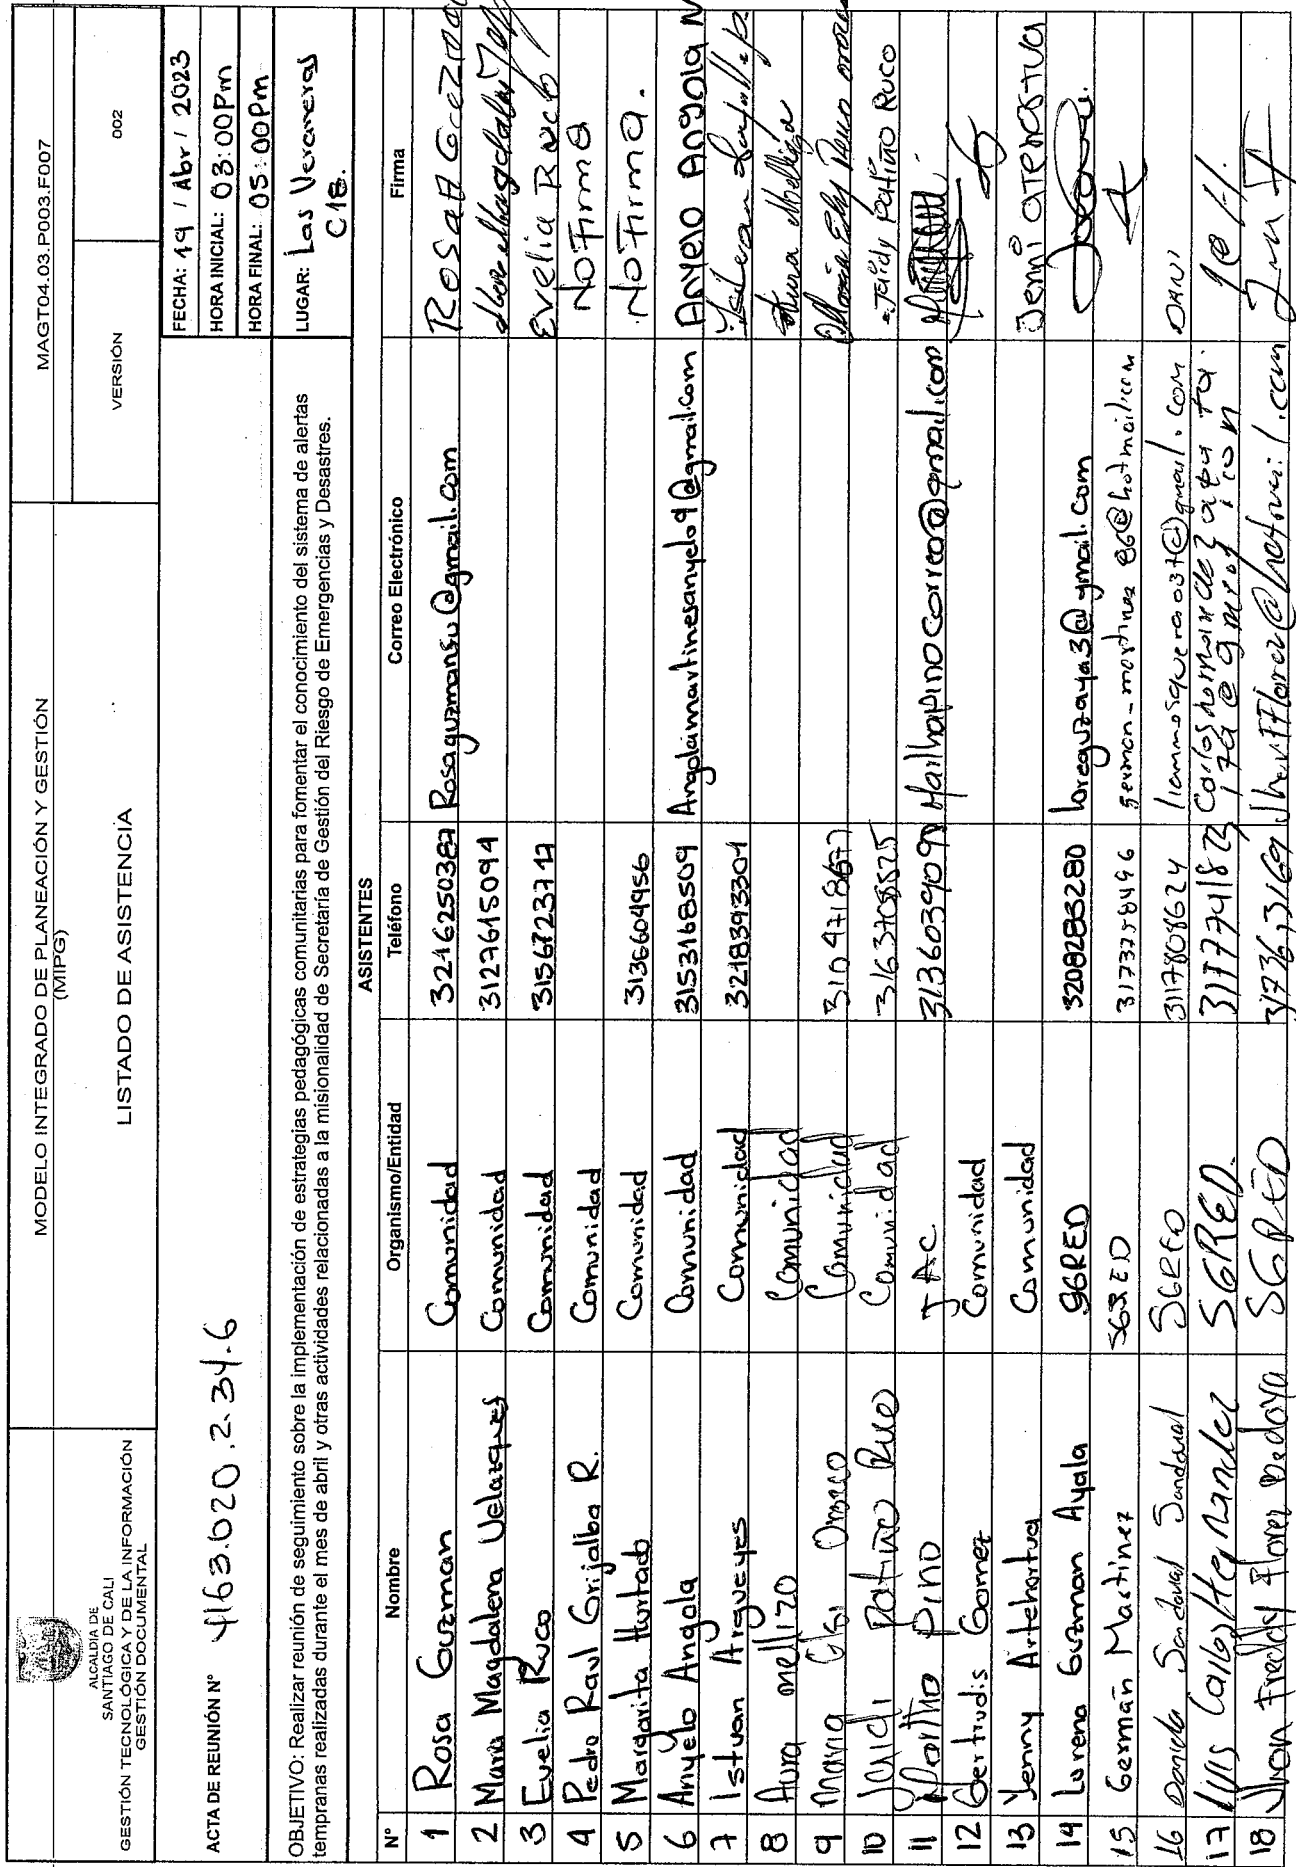 ALCALDIA DE
SANTIAGO DE CALI
GESTIÓN TECNOLÓGICA Y DE LA INFORMACIÓN
GESTIÓN DOCUMENTAL
MODELO INTEGRADO DE PLANEACIÓN Y GESTIÓN
(MIPG)
LISTADO DE ASISTENCIA
MAGT04.03.P003.F007
VERSIÓN 002
ACTA DE REUNIÓN N° 4163.020.2.34.6
FECHA: 19 / Abr / 2023
HORA INICIAL: 03:00Pm
HORA FINAL: 05:00Pm
OBJETIVO: Realizar reunión de seguimiento sobre la implementación de estrategias pedagógicas comunitarias para fomentar el conocimiento del sistema de alertas
tempranas realizadas durante el mes de abril y otras actividades relacionadas a la misionalidad de Secretaría de Gestión del Riesgo de Emergencias y Desastres.
LUGAR: Las Veraneras
C18.
ASISTENTES
N° Nombre Organismo/Entidad Teléfono Correo Electrónico Firma
1 Rosa Guzman Comunidad 3216250387 Rosaguzmansu@gmail.com Rosa
2 Maria Magdalena Velazquez Comunidad 3127615094
3 Evelia Ruco Comunidad 3156723717 Evelia Ruco
4 Pedro Raul Grijalba R. Comunidad No Firma
5 Margarita Hurtado Comunidad 3136604956 No Firma.
6 Anyelo Angola Comunidad 3153168509 Angolamartinesanyelo9@gmail.com Anyelo Angola N
7 Istuan Argueyes Comunidad 3218393304
8 Aura mellizo Comunidad Aura Mellizo
9 Maria Orozco Comunidad 3104718677 Maria
10 Patiño Ruco Comunidad 3163708525 Patiño Ruco
11 Pino JAC. 3136039090
12 Gertrudis Gomez Comunidad
13 Yenny Artehortua Comunidad Jenni
14 Lorena Guzman Ayala SGRED 3208283280 loreguzaya3@gmail.com
15 Germán Martinez SGRED 3173758496 german-martinez86@hotmail.com
16 Sandoval Sandoval SGRED 3117808624
17 Luis Carlos Hernandez SGRED. 3117741823
18 Jhon Freddy Florez Bedoya SGRED